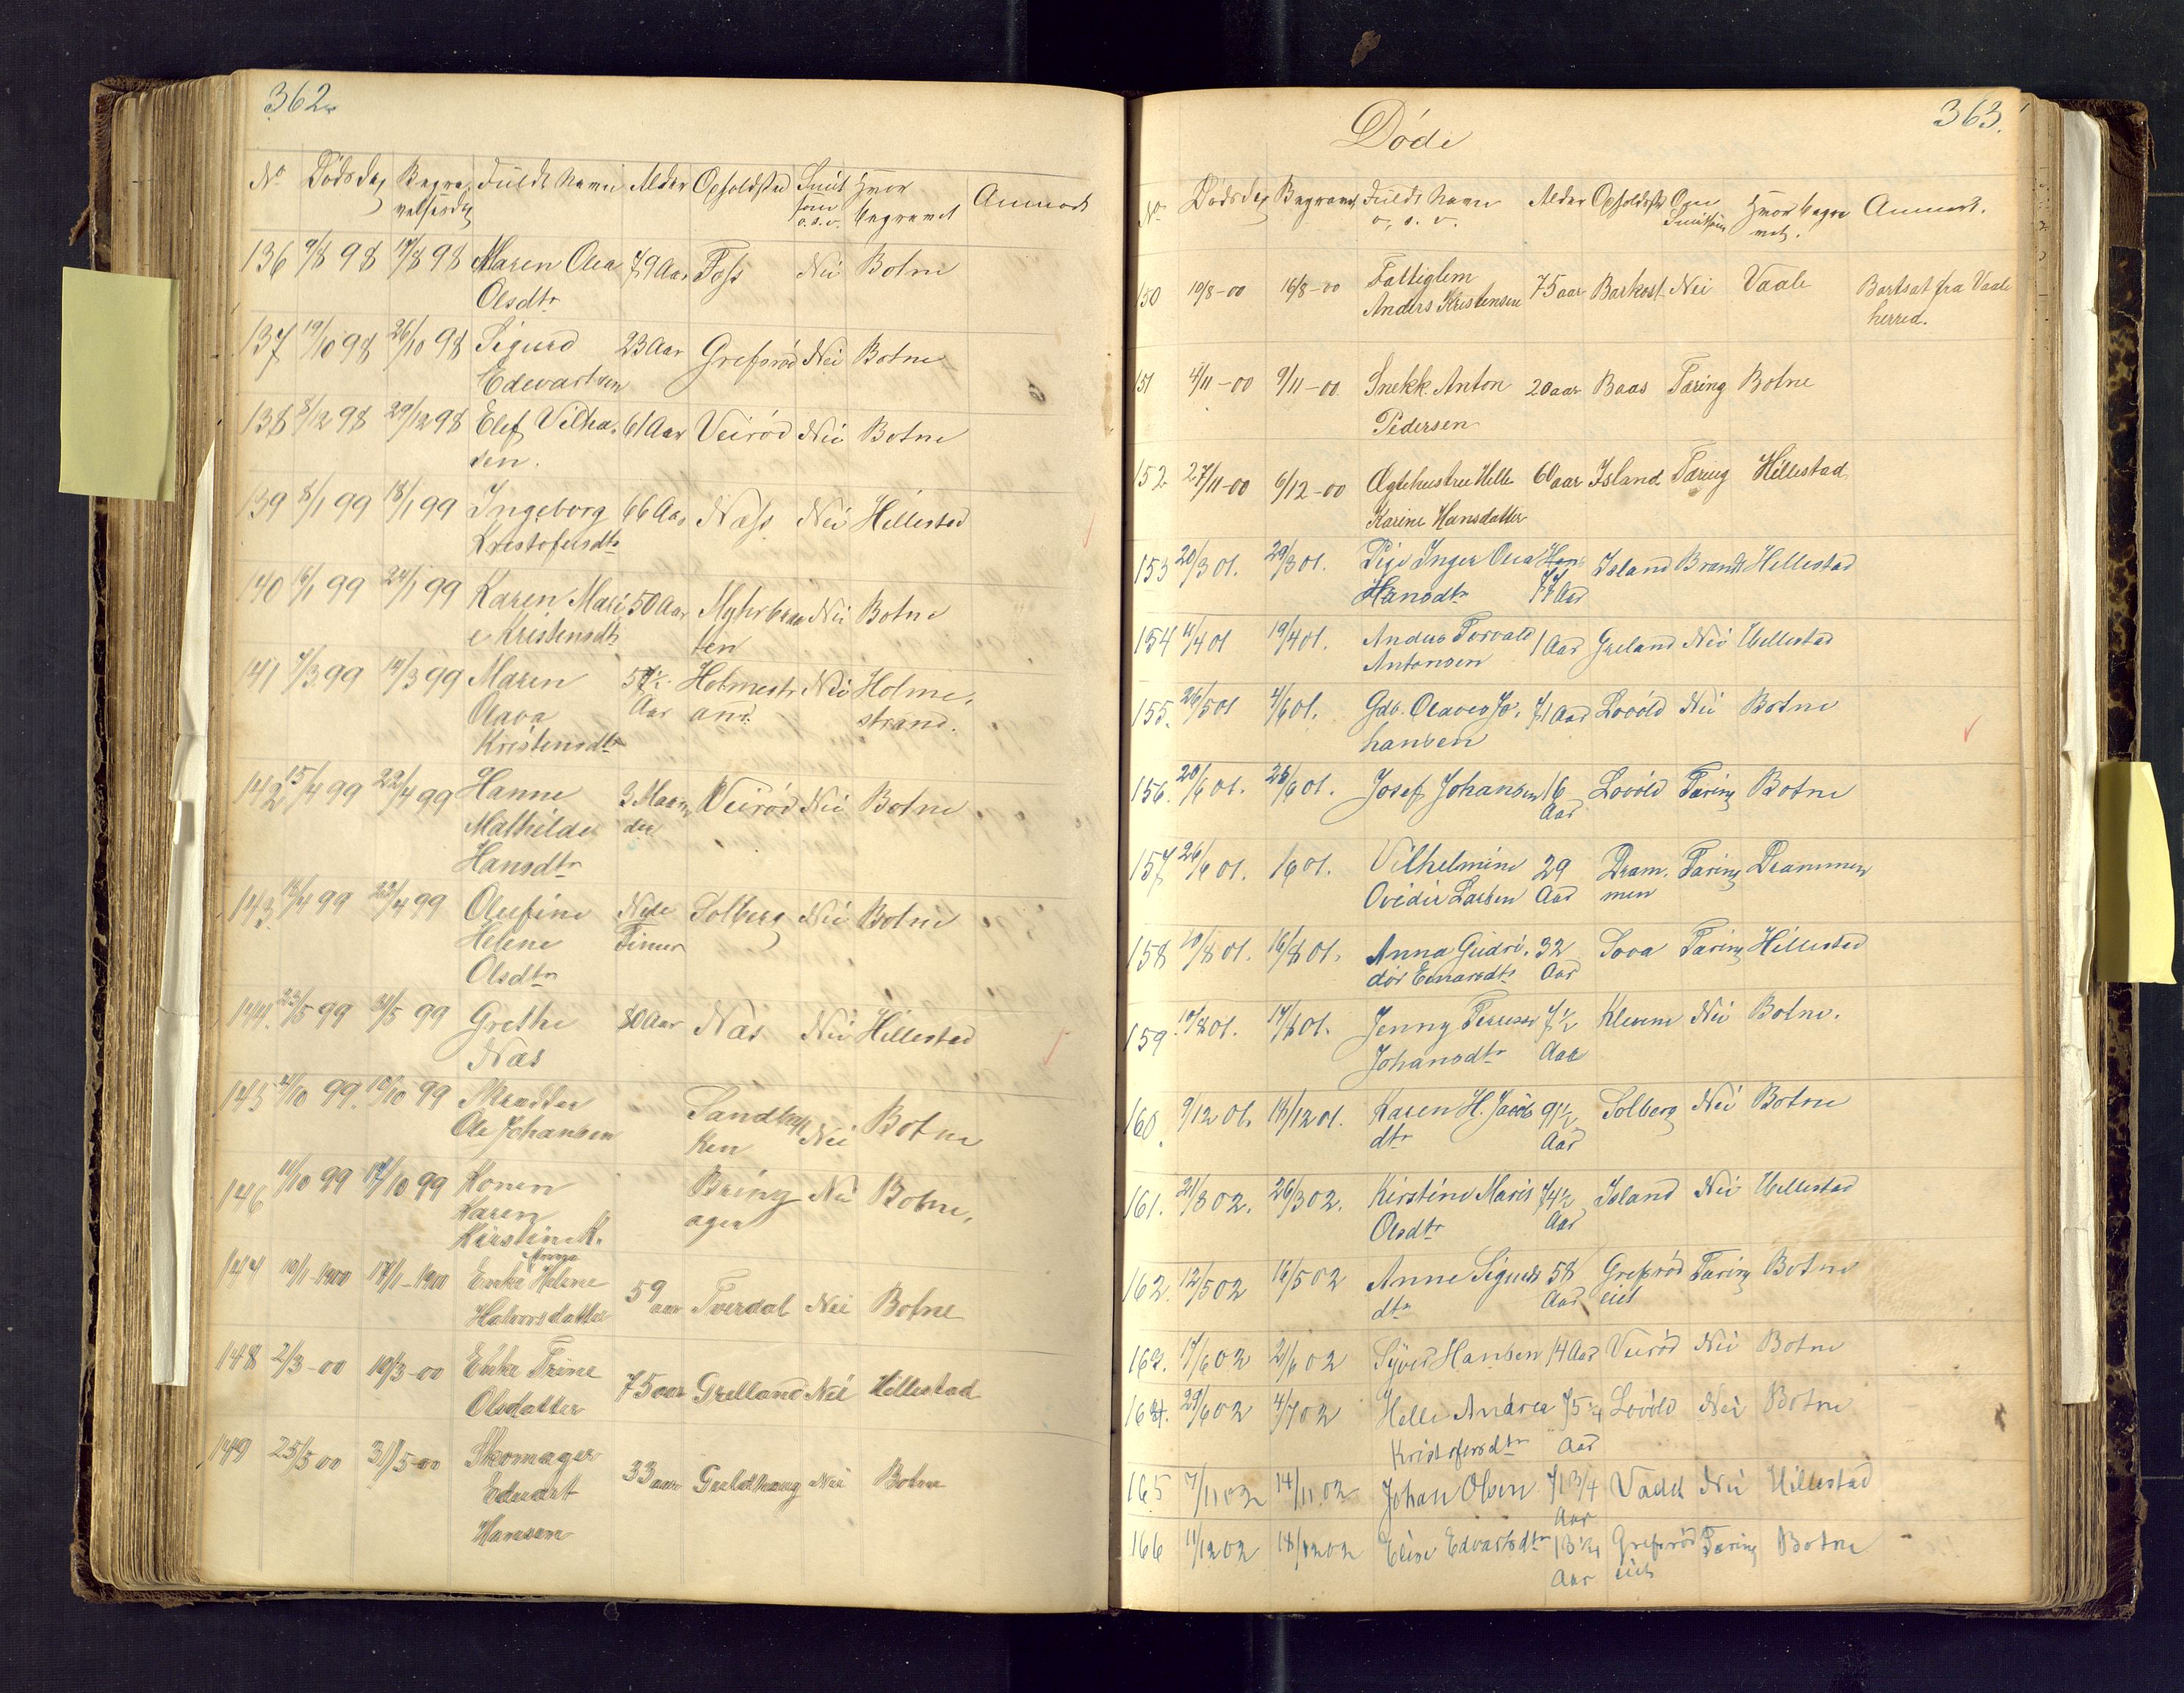 362
No Dødsdag Begra- Fuldt Navn Alder Opholdsted Smit- Hvor Anmærk
velsesdag som begravet
o.s.v.
136 9/8 98 17/8 98 Maren Olea 79 Aar Foss Nei Botne
Olsdtr
137 19/10 98 26/10 98 Sigurd 23 Aar Grefsrød Nei Botne
Edevartsen
138 8/12 98 29/12 98 Elef 61 Aar Veirød Nei Botne
sen.
139 8/1 99 18/1 99 Ingeborg 66 Aar Næss Nei Hillestad
Kristofersdtr
140 16/1 99 24/1 99 Karen Mari 50 Aar Myhrbraa Nei Botne
e Kristensdtr ten
141 7/3 99 14/3 99 Maren Holmestr Nei Holme-
Olava Aar and. strand.
Kristensdtr
142 15/4 99 22/4 99 Hanne 3 Maan Veirød Nei Botne
Mathilde der
Hansdtr
143 15/4 99 22/4 99 Olefine Nyle Solberg Nei Botne
Helene Timer
Olsdtr
144. 23/5 99 31/5 99 Grethe 80 Aar Næs Nei Hillestad
Næs
145 4/10 99. 10/10 99 Skrædder Sandbæk Nei Botne
Ole Johansen ken
146 11/10 99 17/10 99 Konen Bring Nei Botne.
Karen ager
Kirstine K.
147 10/1-1900 17/1-1900 Enke Helene 59 aar Tverdal Nei Botne
Halvorsdatter
148 2/3-00 10/3-00 Enke Trine 75 aar Grelland Nei Hillestad
Olsdatter
149 25/5 00 31/5-00 Skomager 33 aar Nei Botne
Edvart
Hansen
Døde 363.
No Dødsdag Begravel. Fuldt Navn Alder Opholdssted Om Hvor begra Anmærk.
o. s. v. Smitsom vet.
150 10/8-00 16/8-00 Fattiglem 75 aar Barkost Nei Vaale Bortsat fra Vaale
Anders Kristensen herred.
151 4/11-00 9/11-00. Snekk. Anton 20 aar Baas Tæring Botne
Pedersen
152 27/11-00 6/12-00 Ægtehustru Helle 60 aar Island Tæring Hillestad
Karine Hansdatter
153 20/3 01. 29/3 01. Pige Inger Olea Hans Island Brandt Hillestad
Hansdtr 77 Aar
154 11/4 01 19/4 01. Anders Torvald 1 Aar Greland Nei Hillestad
Antonsen
155. 26/5 01 4/6 01. Gdb. Olaves Jo- 71 Aar Løvold Nei Botne
hansen
156. 20/6 01. 28/6 01. Josef Johansen 16 Løvold Tæring Botne
Aar
157 26/6 01. 1601. Vilhelmine 29 Dram- Tæring Drammen
Ovidie Larsen Aar men
158 10/8 01. 16/8 01. Anna Gudri- 32 Sova Tæring Hillestad
dør Aar
159 10/8 01. 17/8 01. Jenny Terese 7 1/2 Klevene Nei Botne.
Johansdtr Aar
160. 9/12 01. 13/12 01. Karen H. Jacobs 91 1/2 Solberg Nei Botne
dtr Aar
161. 21/3 02. 26/3 02. Kirstine Maris 74 1/2 Island Nei Hillestad
Olsdtr Aar
162. 12/5 02 16/5 02 Anne Sigurds 58 Grefsrød Tæring Botne
dtr Aar eiet
163. 17/6 02 21/6 02 Syver Hansen 14 Aar Veirød Nei Botne
164. 29/6 02 4/7 02 Helle Andrea 75 1/4 Løvold Nei Botne
Kristofersdtr Aar
165 7/11 02 14/11 02 Johan Olsen 71 3/4 Vadet Nei Hillestad
Aar
166 11/12 02 18/12 02 Elise Edvartsdtr 13 1/4 Grefsrød Tæring Botne
Aar eiet